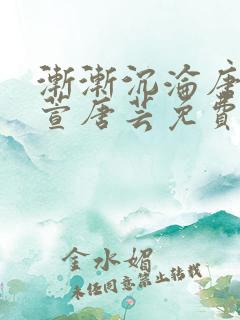 漸漸沉淪唐
萱唐芸免費
金水媚
未经同意禁止转载